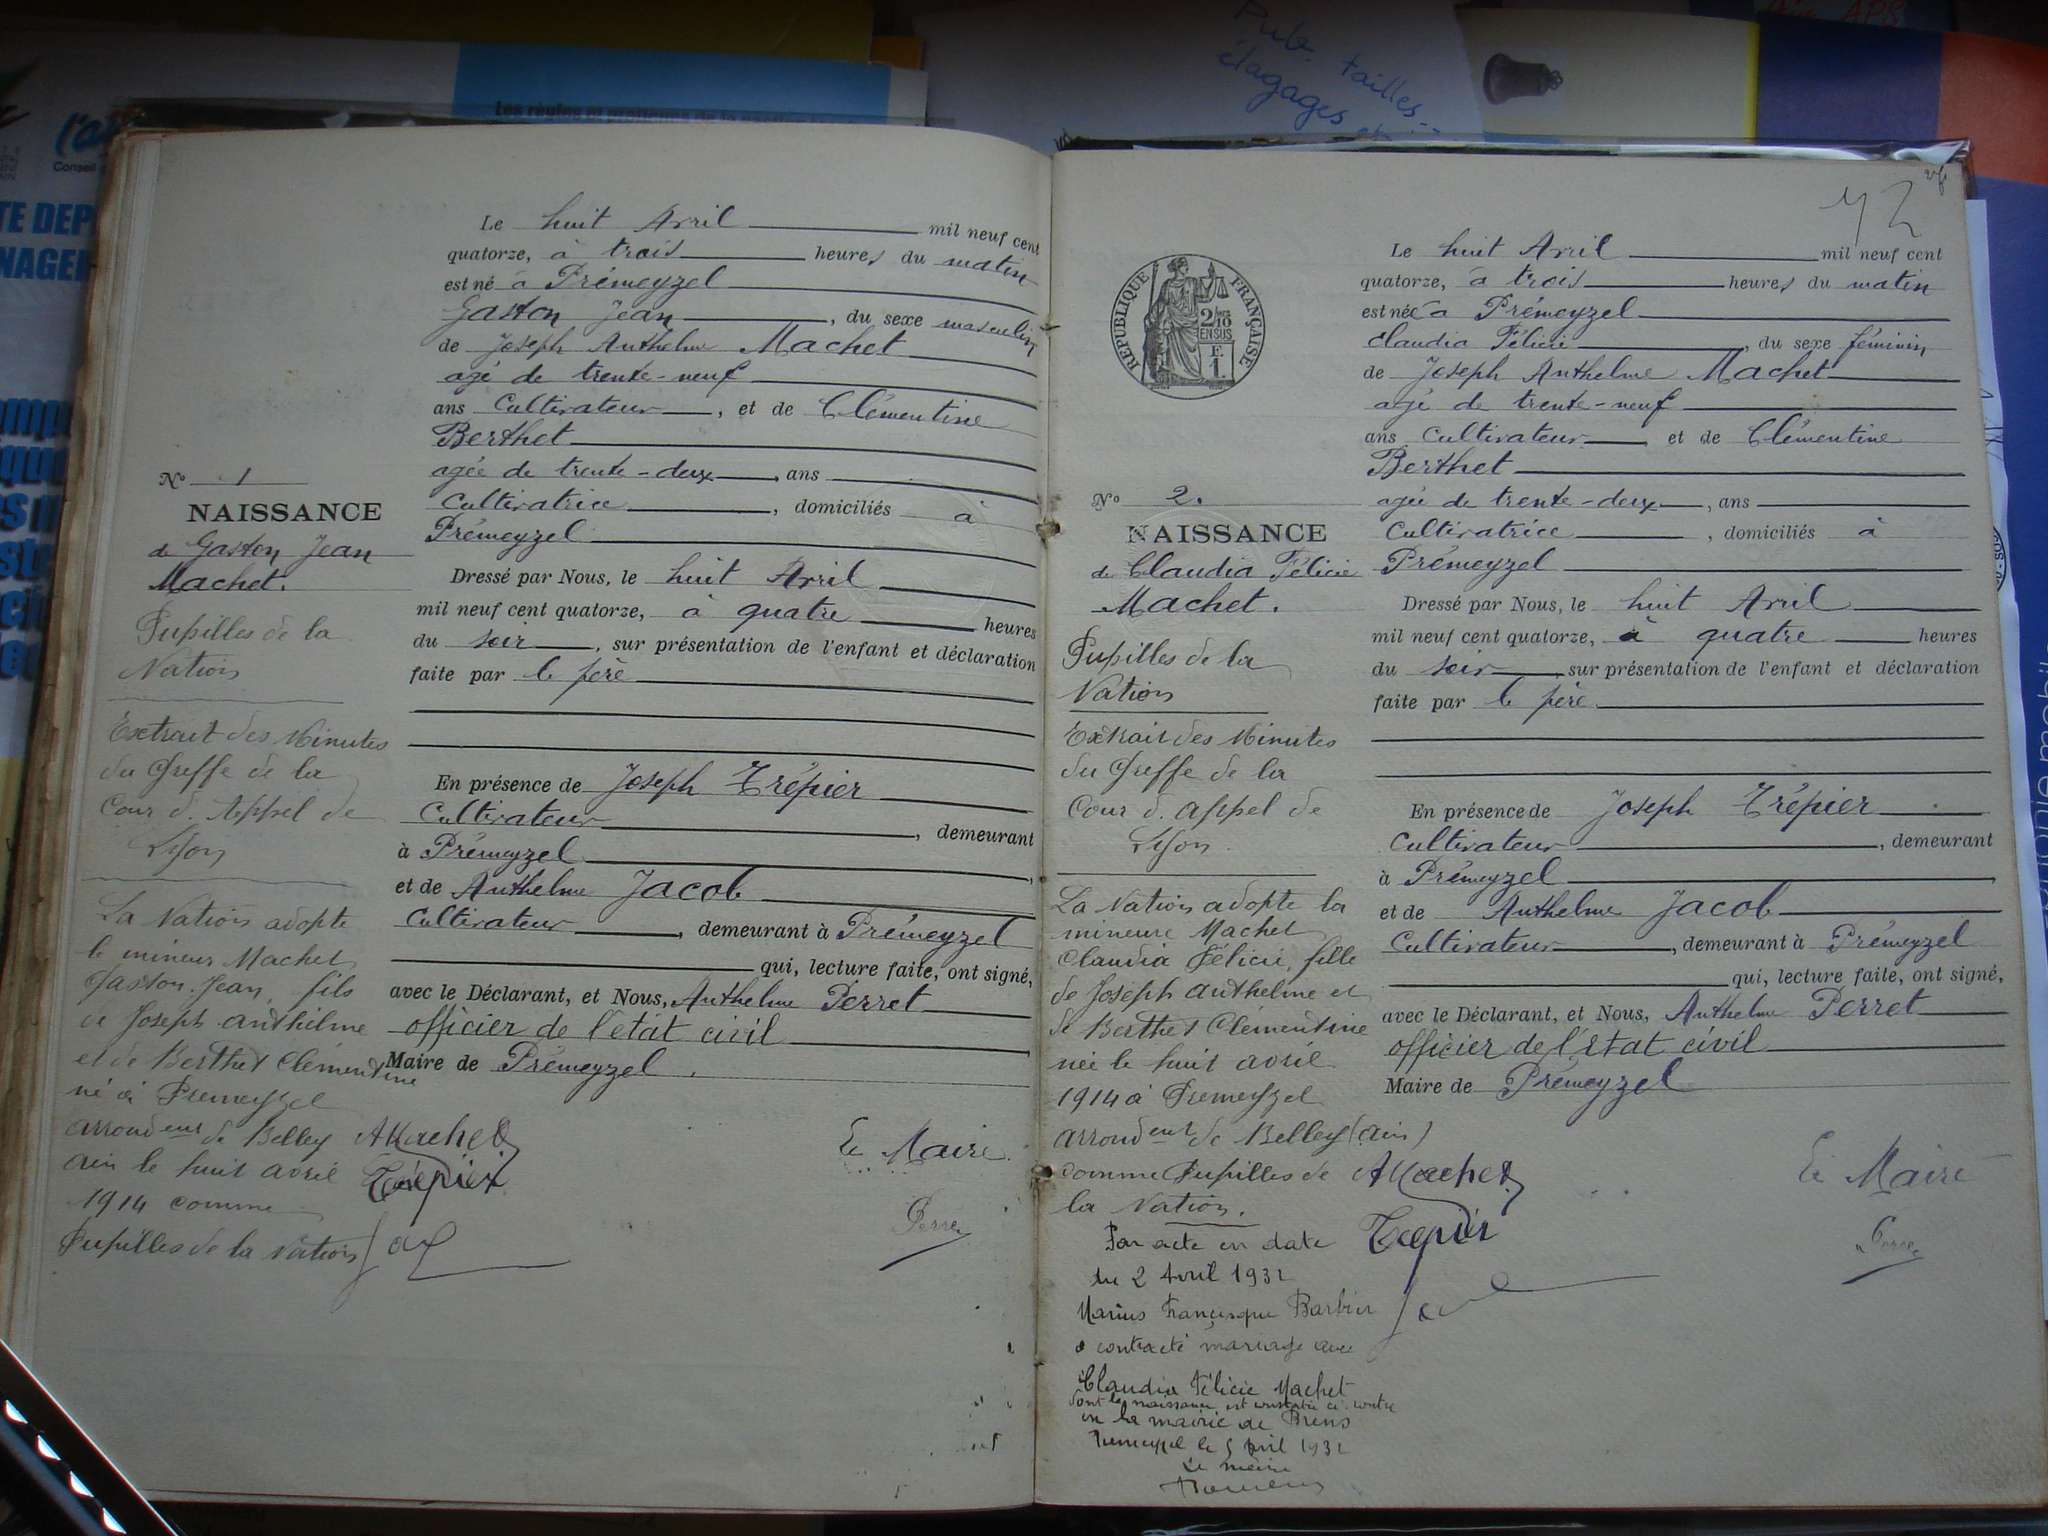 Pub. tailles...
élagages
l'a
Conseil
Les règles
TE DEP
NAGE
Le huit Avril mil neuf cent
quatorze, à trois heures du matin
est né à Prémeyzel
Gaston Jean, du sexe masculin
de Joseph Anthelme Machet
agé de trente-neuf
ans Cultivateur, et de Clémentine
Berthet
agée de trente-deux, ans
Cultivatrice, domiciliés à
Prémeyzel
Dressé par Nous, le huit Avril
mil neuf cent quatorze, à quatre heures
du soir, sur présentation de l'enfant et déclaration
faite par le père
En présence de Joseph Trépier
Cultivateur, demeurant
à Prémeyzel,
et de Anthelme Jacob
Cultivateur, demeurant à Prémeyzel
qui, lecture faite, ont signé,
avec le Déclarant, et Nous, Anthelme Perret
officier de l'état civil,
Maire de Prémeyzel.
AMachet
Trépier
Jac
Le Maire.
Perret
No 1
NAISSANCE
de Gaston Jean
Machet.
Pupilles de la
Nation
Extrait des Minutes
du Greffe de la
Cour d. Appel de
Lyon
La Nation adopte
le mineur Machet
Gaston Jean, fils
de Joseph anthelme
et de Berthet Clémentine
né à Premeyzel
arrondeur de Belley
ain le huit avril
1914 comme
Pupilles de la Nation
42
RÉPUBLIQUE FRANÇAISE
2/10
EN SUS
F.
1.
Le huit Avril mil neuf cent
quatorze, à trois heures du matin
est née à Prémeyzel
Claudia Félicie, du sexe féminin
de Joseph Anthelme Machet
agé de trente-neuf
ans Cultivateur, et de Clémentine
Berthet
agée de trente-deux, ans
Cultivatrice, domiciliés à
Prémeyzel
Dressé par Nous, le huit Avril
mil neuf cent quatorze, à quatre heures
du soir, sur présentation de l'enfant et déclaration
faite par le père.
En présence de Joseph Trépier
Cultivateur, demeurant
à Prémeyzel,
et de Anthelme Jacob
Cultivateur, demeurant à Prémeyzel
qui, lecture faite, ont signé,
avec le Déclarant, et Nous, Anthelme Perret
officier de l'état civil
Maire de Prémeyzel
AMachet
Trépier
Jac
Le Maire
Perret
No 2.
NAISSANCE
de Claudia Félicie
Machet.
Pupilles de la
Nation
Extrait des Minutes
du Greffe de la
Cour d. appel de
Lyon.
La Nation adopte la
mineure Machet
Claudia Félicie, fille
de Joseph anthelme et
de Berthet Clémentine
née le huit avril
1914 à Premeyzel
arrondeur de Belley (ain)
comme Pupilles de
la Nation.
Par acte en date
du 2 Avril 1932
Marius Francisque Barbier
a contracté mariage avec
Claudia Félicie Machet
dont la naissance est constatée ci-contre
en la mairie de Brens
Premeyzel le 5 Avril 1932
Le maire